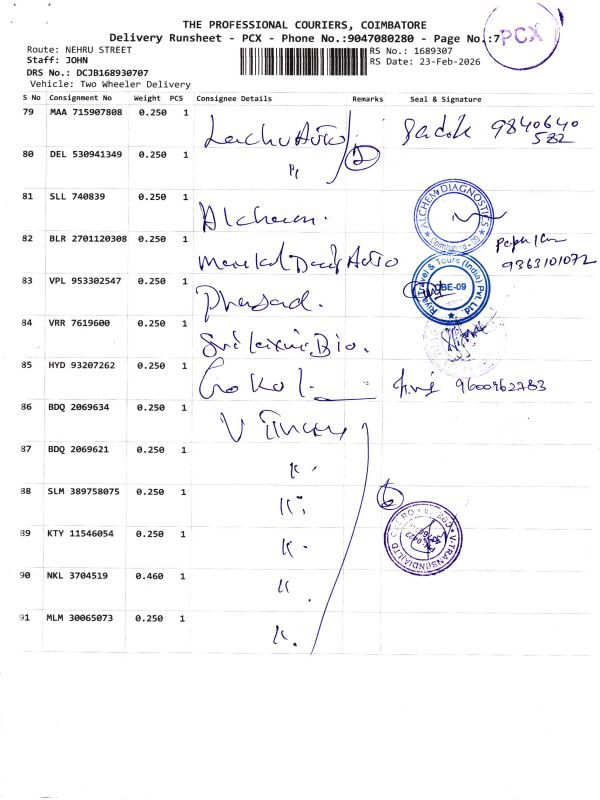 THE PROFESSIONAL COURIERS, COIMBATORE
Delivery Runsheet - PCX - Phone No.:9047080280 - Page No.:7
PCX
Route: NEHRU STREET
RS No.: 1689307
Staff: JOHN
RS Date: 23-Feb-2026
DRS No.: DCJB168930707
Vehicle: Two Wheeler Delivery
S No Consignment No Weight PCS Consignee Details Remarks Seal & Signature
79 MAA 715907808 0.250 1 9840640
582
80 DEL 530941349 0.250 1 2
81 SLL 740839 0.250 1 Alchem.
ALCHEM DIAGNOSTICS
Coimbatore
82 BLR 2701120308 0.250 1 Auto
9363101072
83 VPL 953302547 0.250 1 Prasad.
Riya Travel & Tours (India) Pvt. Ltd
CBE-09
84 VRR 7619600 0.250 1 Bio.
85 HYD 93207262 0.250 1 Gokol. 9600962783
86 BDQ 2069634 0.250 1 V Trans
87 BDQ 2069621 0.250 1 "
88 SLM 389758075 0.250 1 " 6
V-TRANS(INDIA)LTD
89 KTY 11546054 0.250 1 "
90 NKL 3704519 0.460 1 "
91 MLM 30065073 0.250 1 "